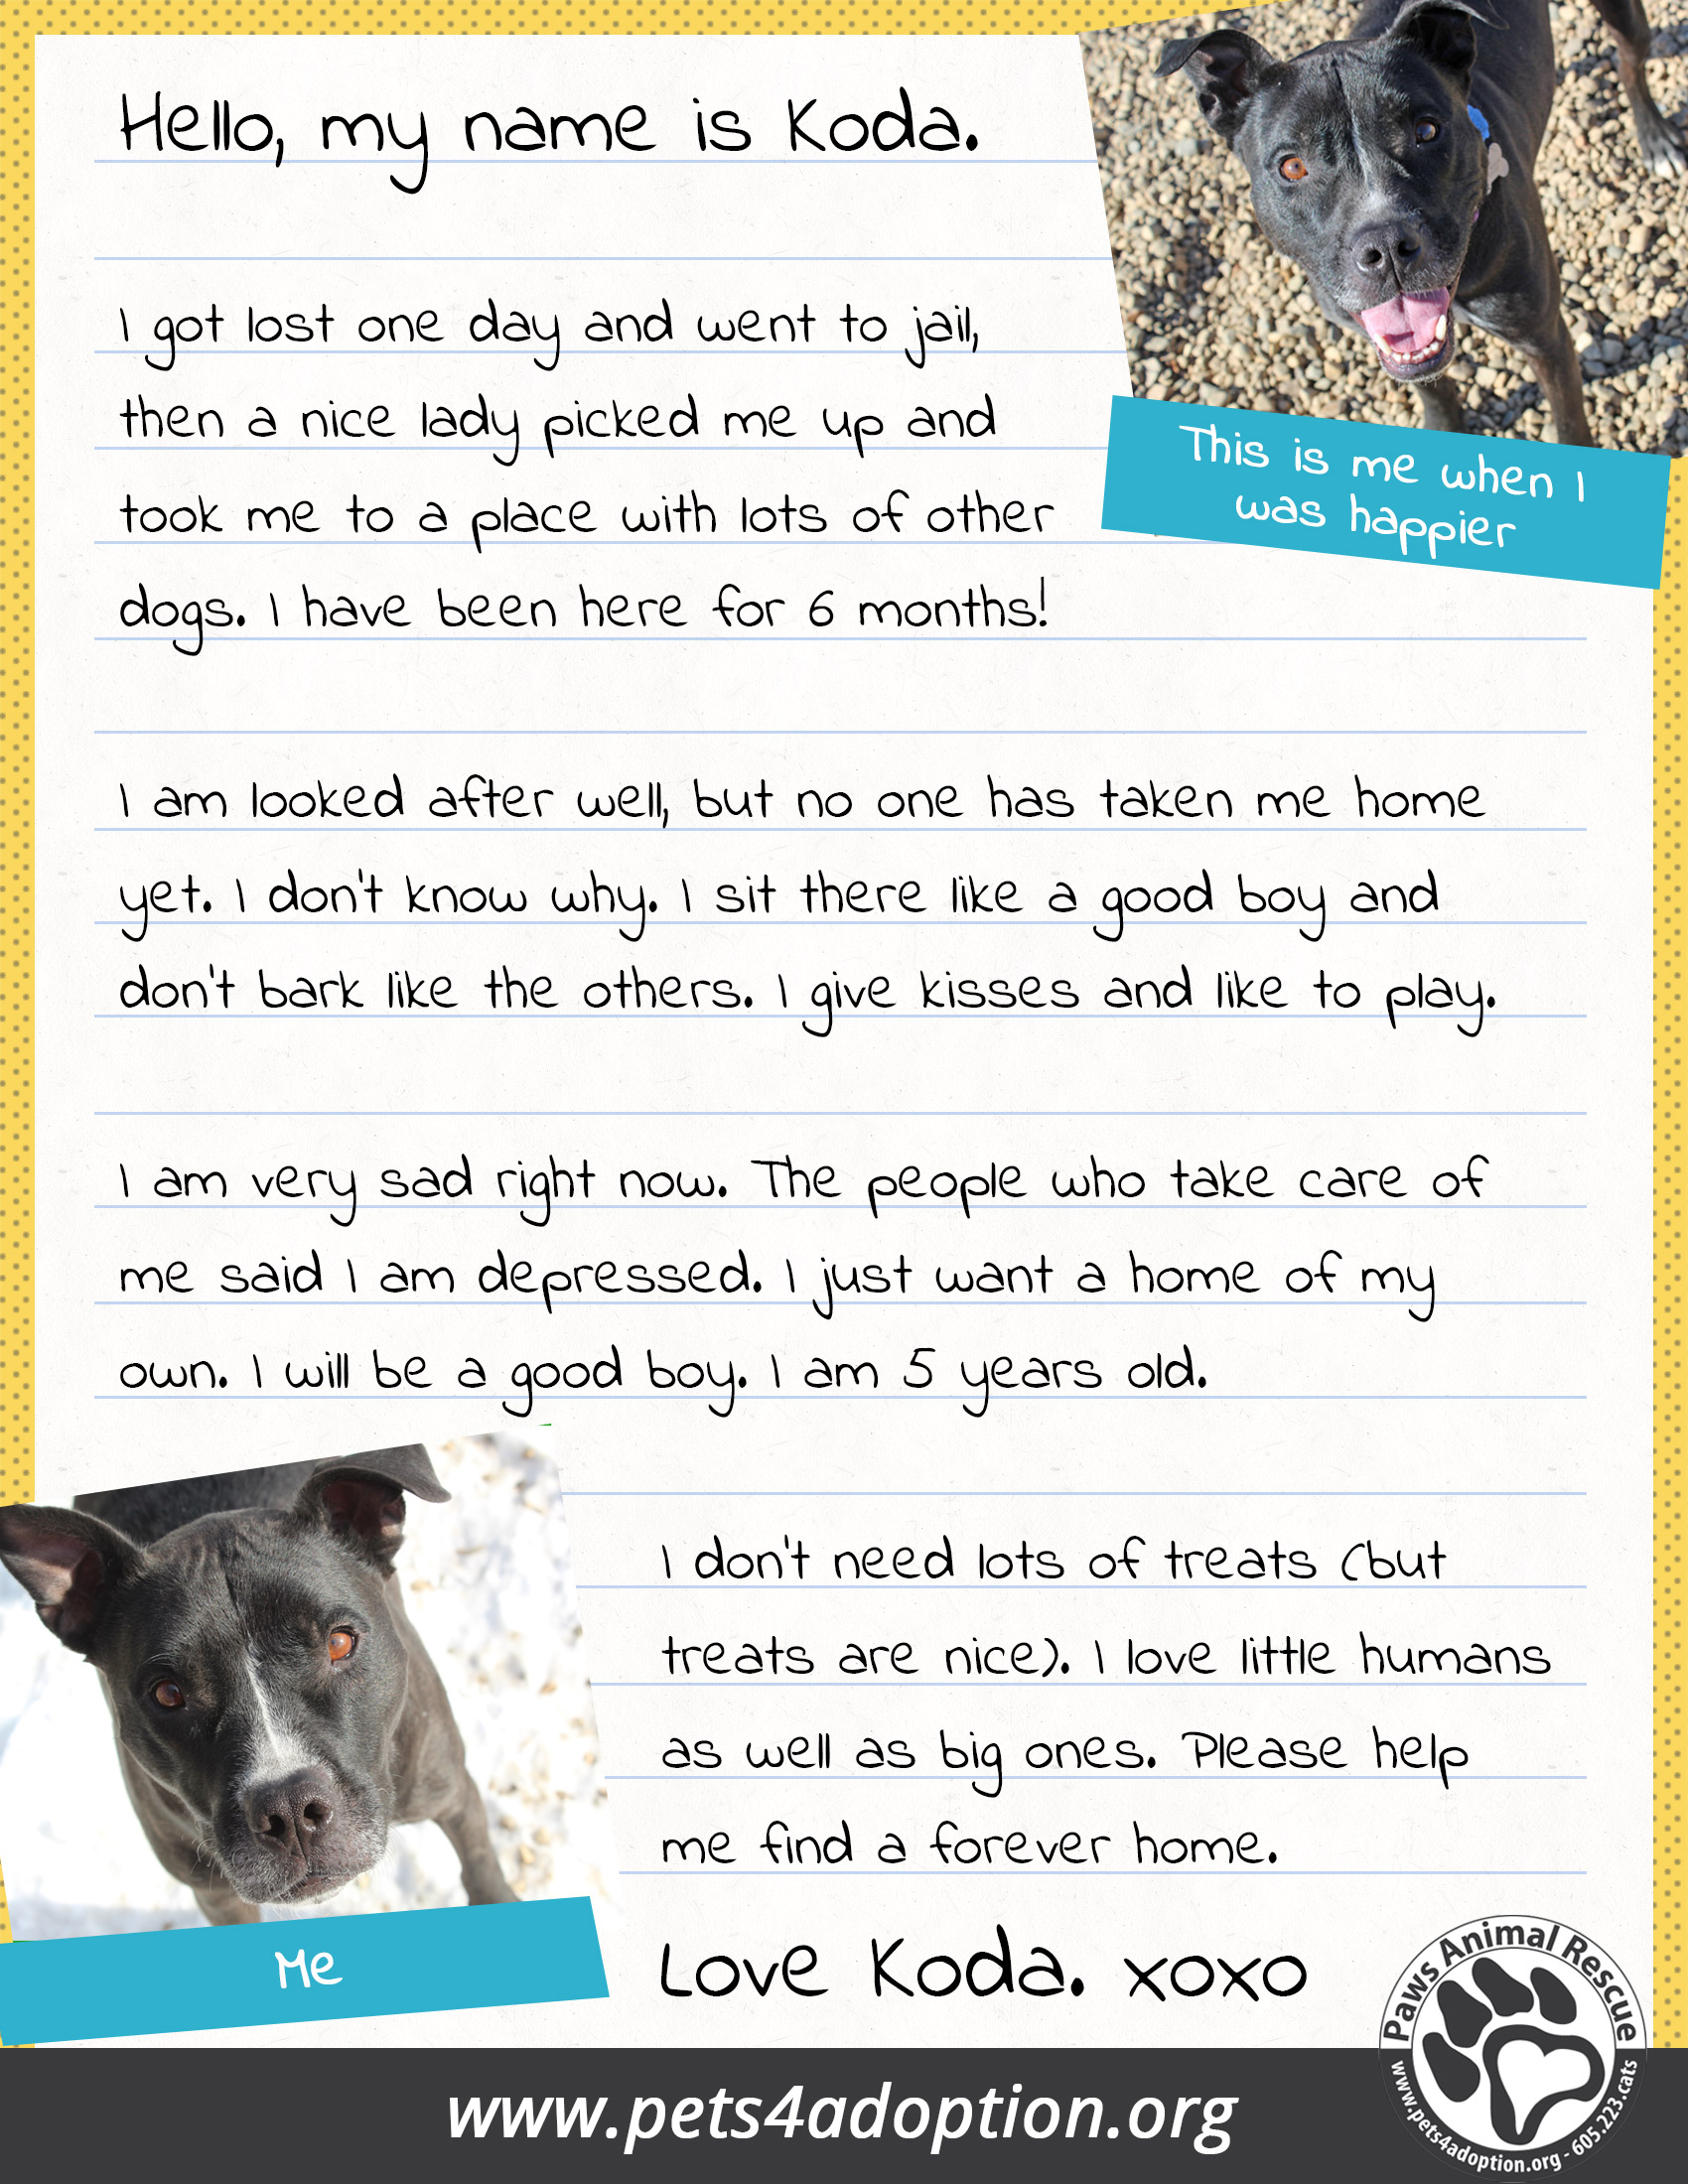 Hello, my name is Koda.
I got lost one day and went to jail,
then a nice lady picked me up and
took me to a place with lots of other
dogs. I have been here for 6 months!
This is me when I
was happier
I am looked after well, but no one has taken me home
yet. I don't know why. I sit there like a good boy and
don't bark like the others. I give kisses and like to play.
I am very sad right now. The people who take care of
me said I am depressed. I just want a home of my
own. I will be a good boy. I am 5 years old.
I don't need lots of treats (but
treats are nice). I love little humans
as well as big ones. Please help
me find a forever home.
Me
Love Koda. xoxo
Paws Animal Rescue
www.pets4adoption.org - 605.223.cats
www.pets4adoption.org